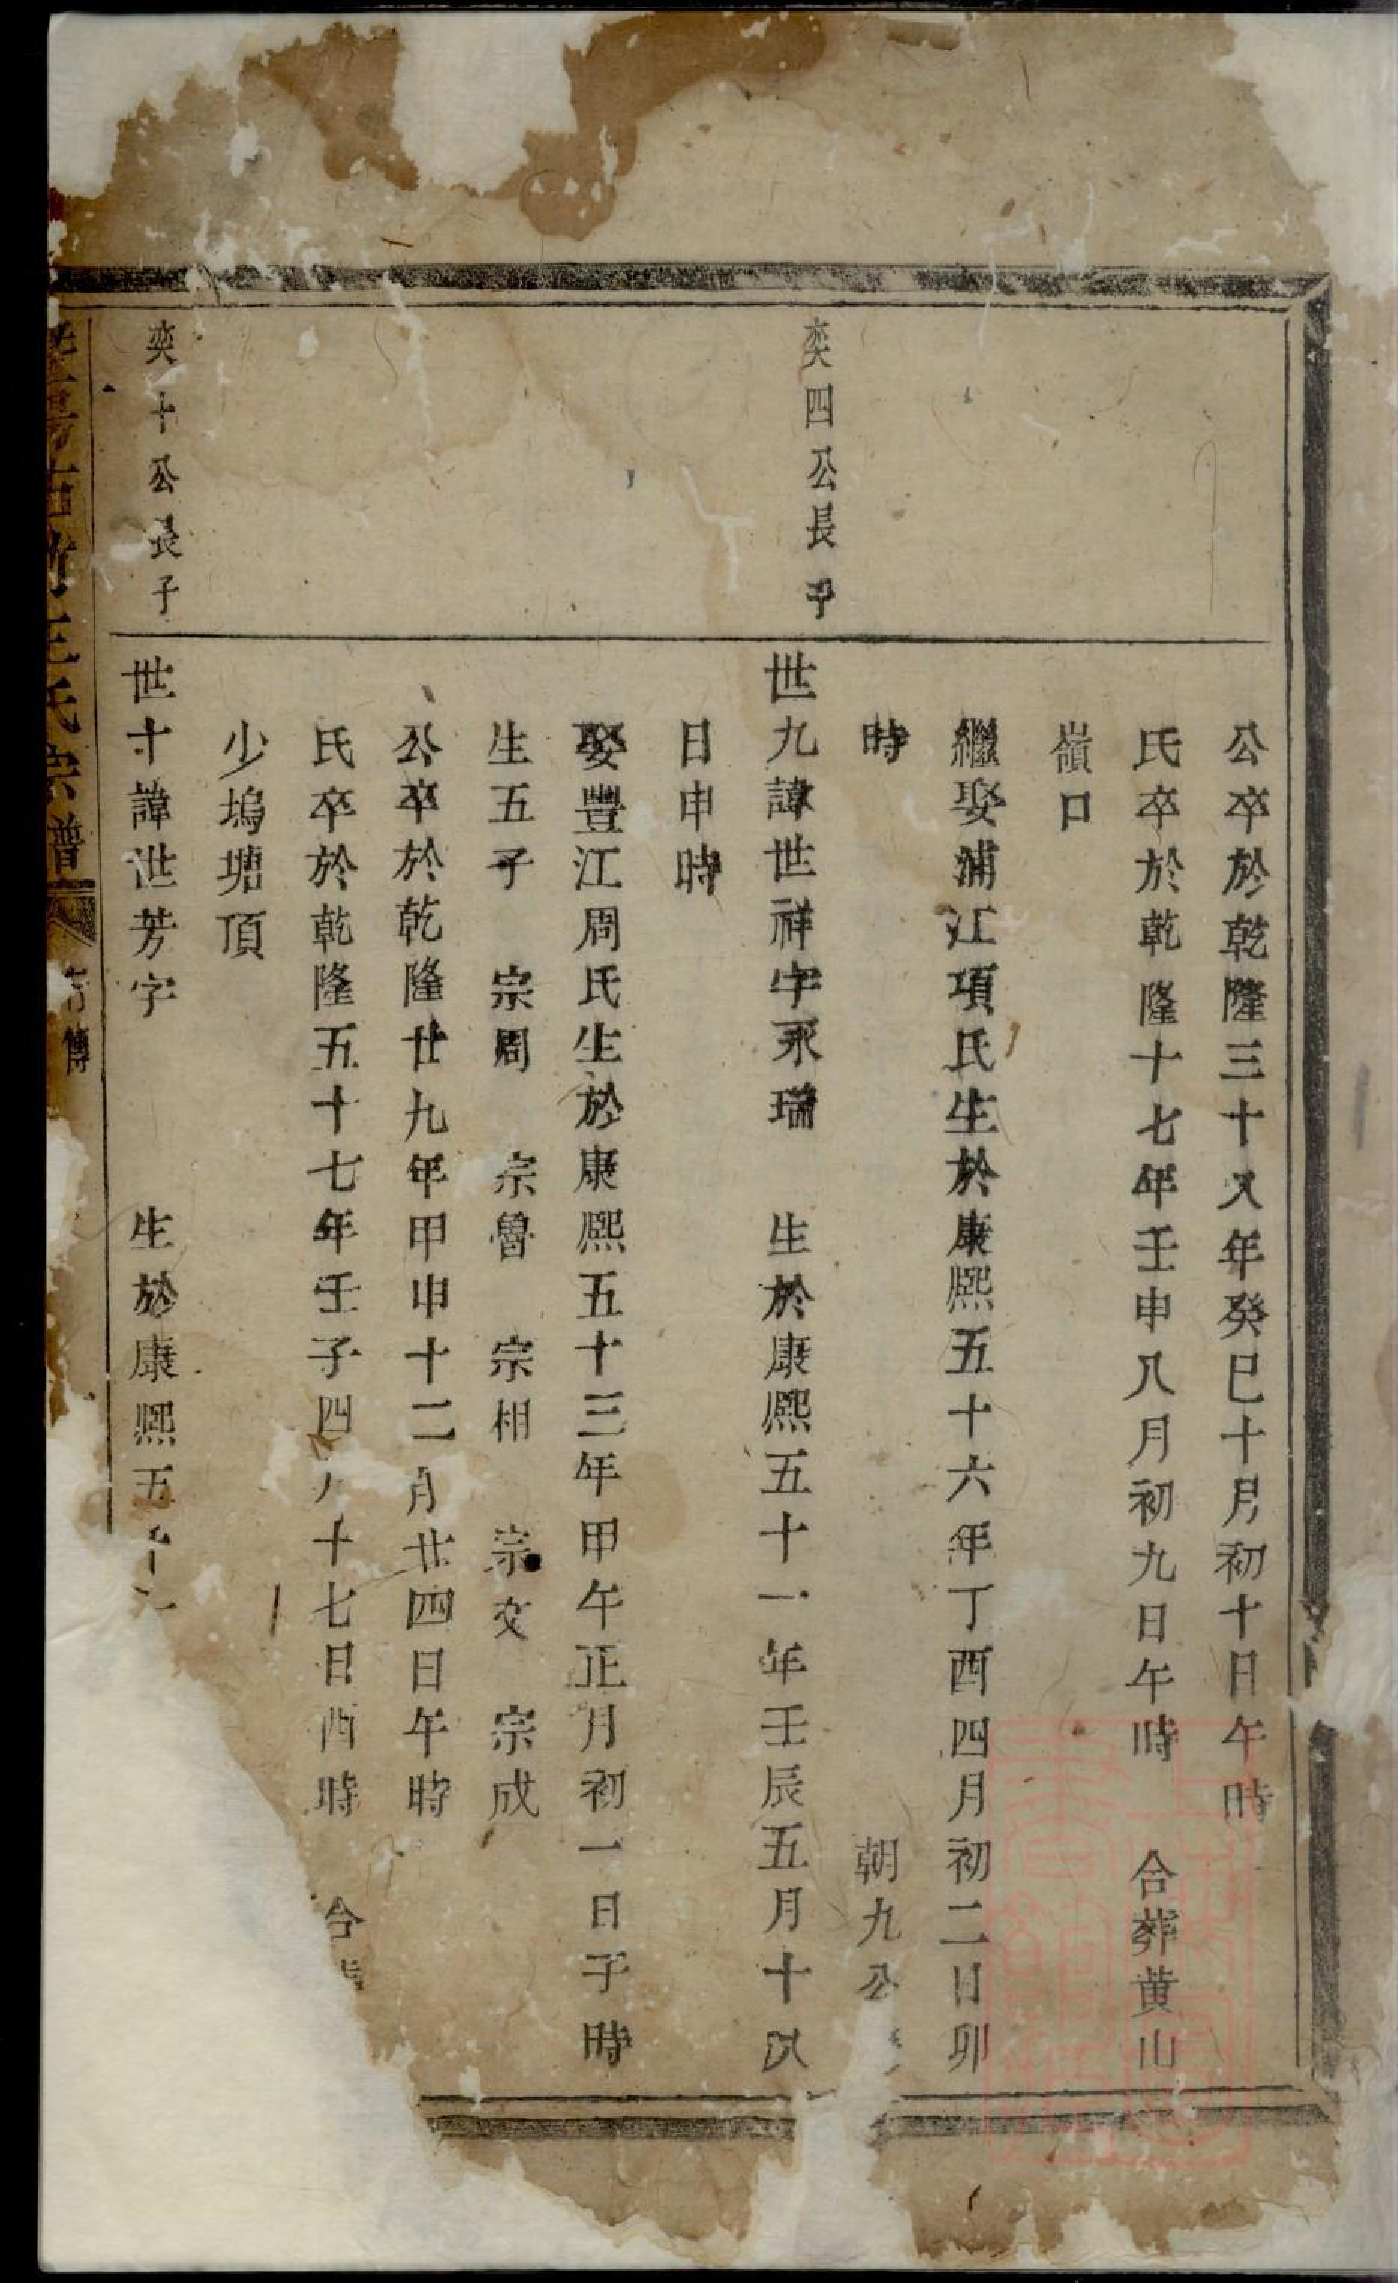 公卒於乾隆三十八年癸巳十月初十日午時
氏卒於乾隆十七年壬申八月初九日午時 合葬黄山
嶺口
繼娶浦江項氏生於康熙五十六年丁酉四月初二日卯
時 朝九公
奕四公長子
世九諱世祥字永瑞 生於康熙五十一年壬辰五月十八
日申時
娶豐江周氏生於康熙五十三年甲午正月初一日子時
生五子 宗周 宗魯 宗相 宗文 宗成
公卒於乾隆廿九年甲申十二月廿四日午時
氏卒於乾隆五十七年壬子四月十七日酉時 合葬
少塢塘頂
奕十公長子
世十諱世芳字 生於康熙五十
王氏宗譜 行傳